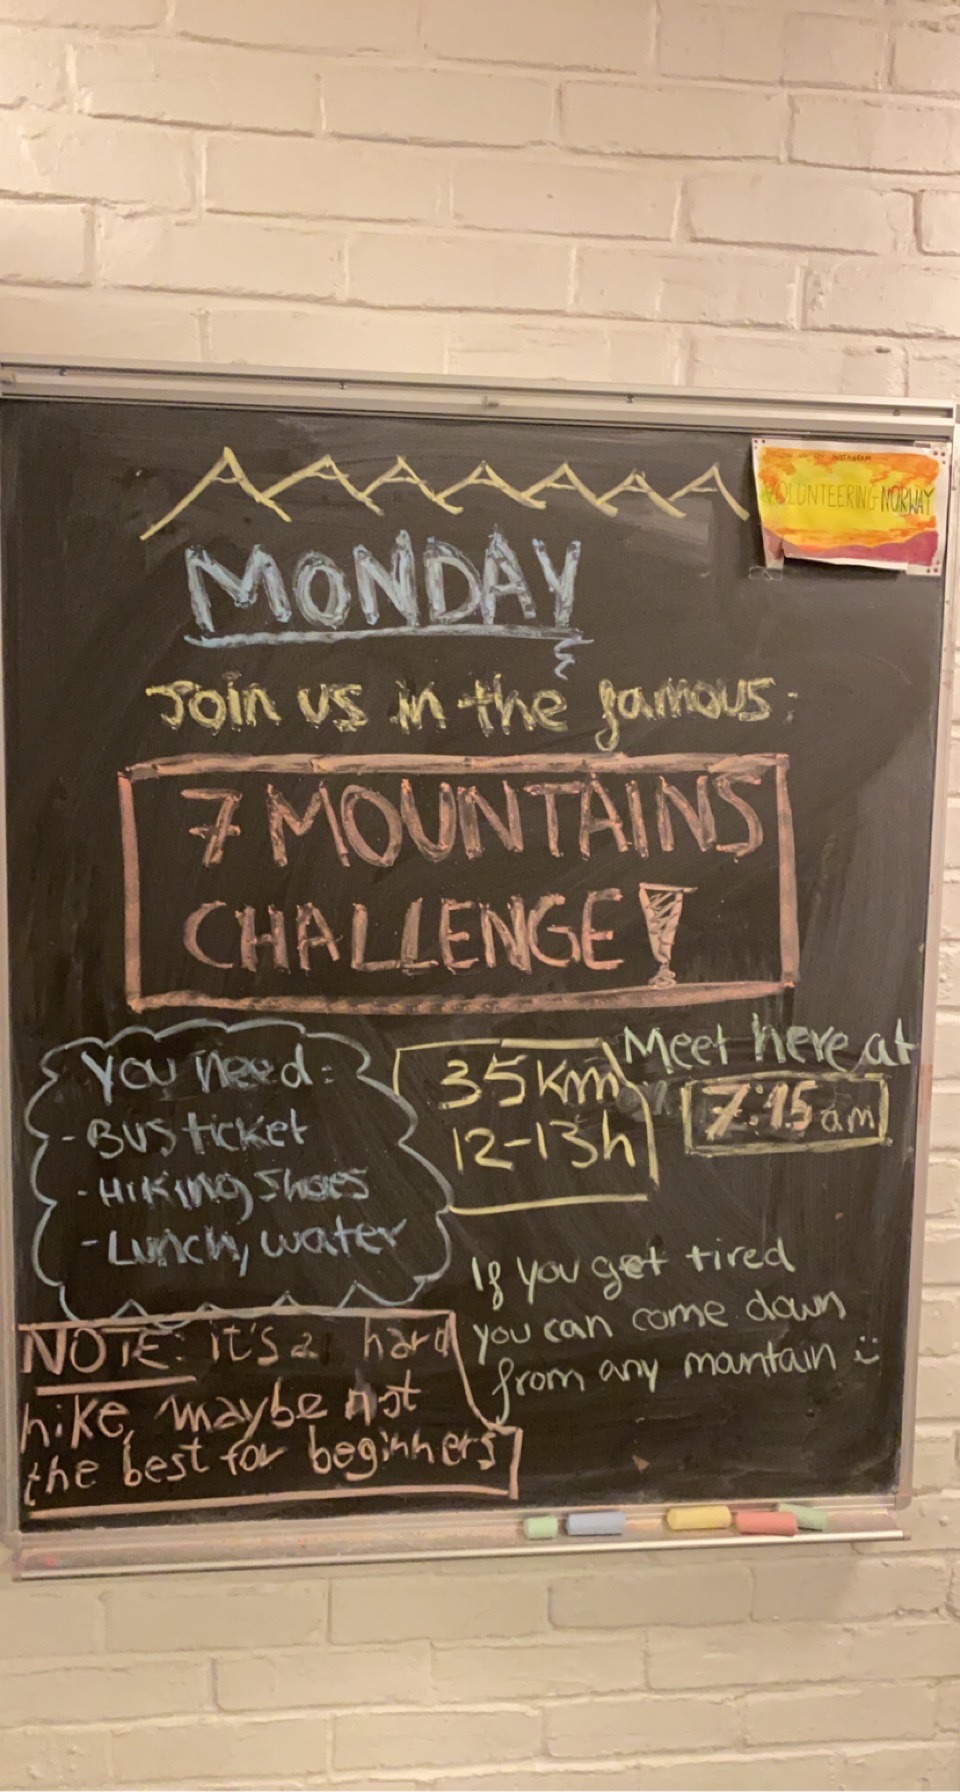 FOLLOW US ON INSTAGRAM
VOLUNTEERING-NORWAY
MONDAY
Join us in the famous:
7 MOUNTAINS
CHALLENGE!
You need:
- Bus ticket
- Hiking shoes
- Lunch, water
35km
12-13h
Meet here at
7:15am
If you get tired
you can come down
from any mantain :)
NOTE: it's a hard
hike, maybe not
the best for beginners